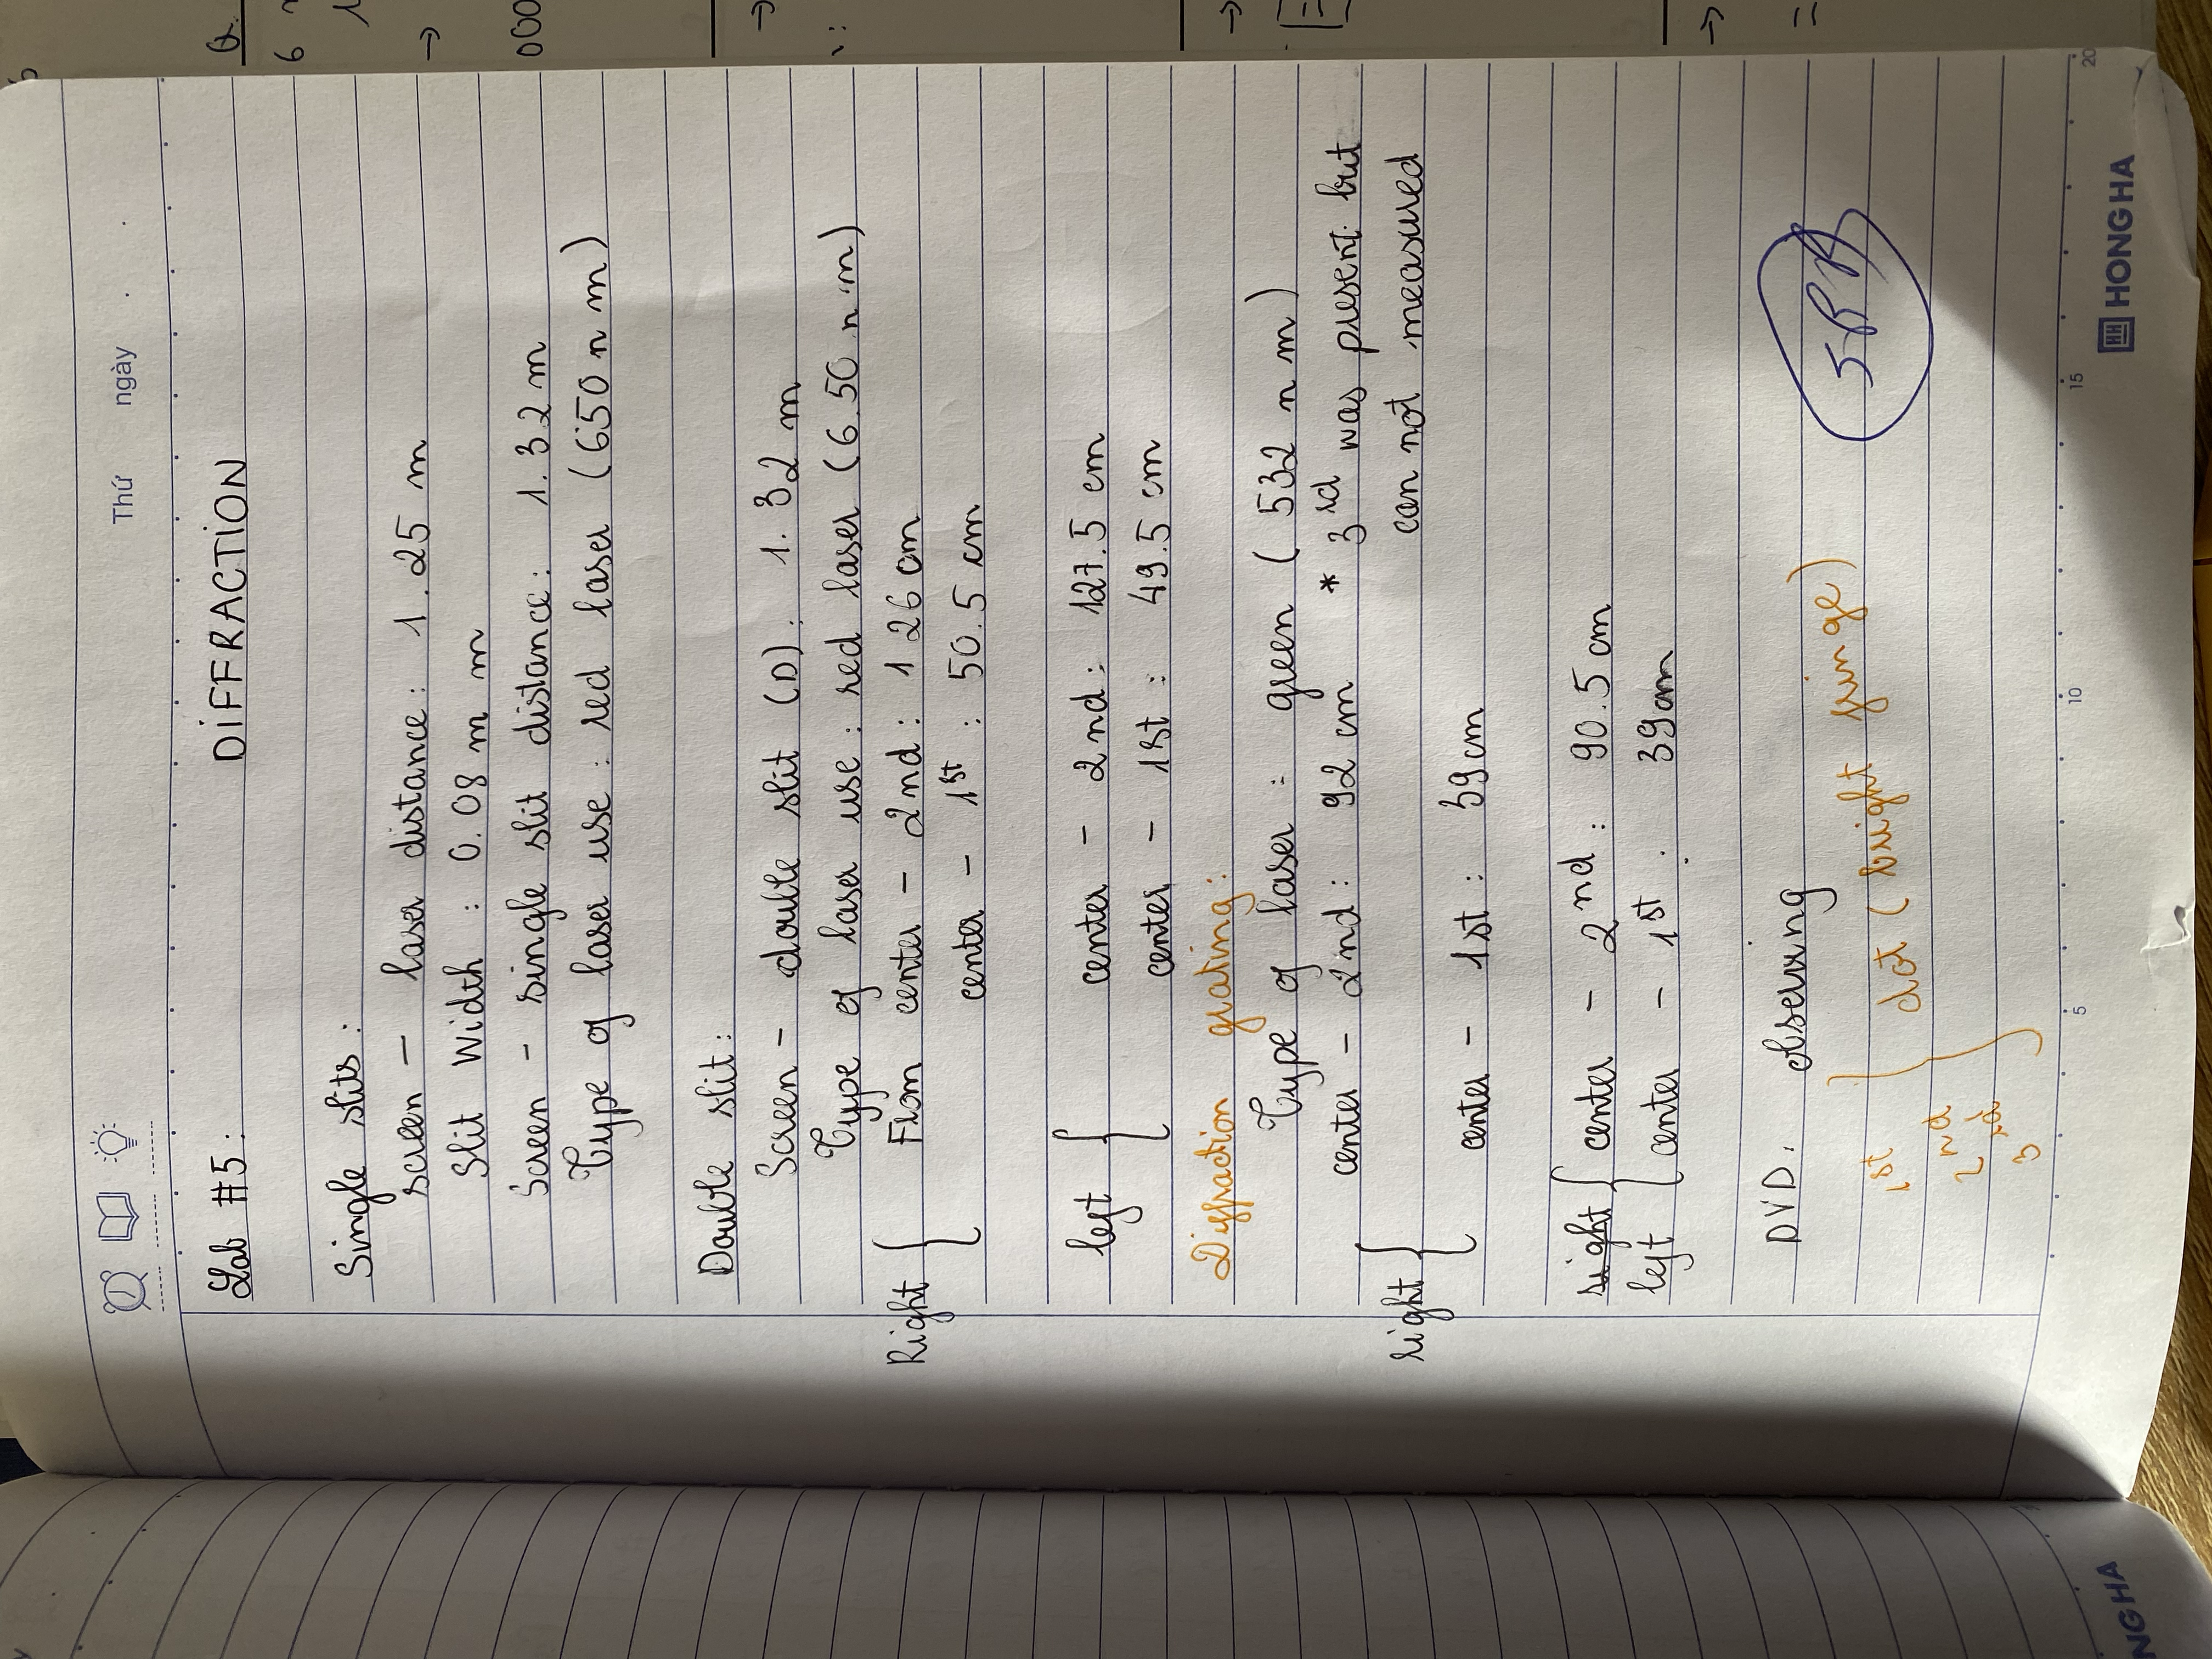 Thứ ngày
Lab #5: DIFFRACTION
Single slits:
screen - laser distance: 1.25 m
Slit Width: 0.08 m m
Screen - single slit distance: 1.32 m
Type of laser use: red laser (650 n m)
Double slit:
Screen - double slit (D): 1.32 m
Type of laser use: red laser (6.50 n m)
Right { From center - 2nd: 126 cm
center - 1st: 50.5 cm
left { center - 2nd: 127.5 cm
center - 1st: 49.5 cm
Diffraction grating:
Type of laser: green (532 n m)
right { center - 2nd: 92 cm * 3rd was present but
can not measured
center - 1st: 39 cm
right { center - 2nd: 90.5 cm
left { center - 1st: 39 cm
DVD: observing
1st } dot (bright fringe)
2nd
3rd
HONG HA
5 10 15 20
NGHA